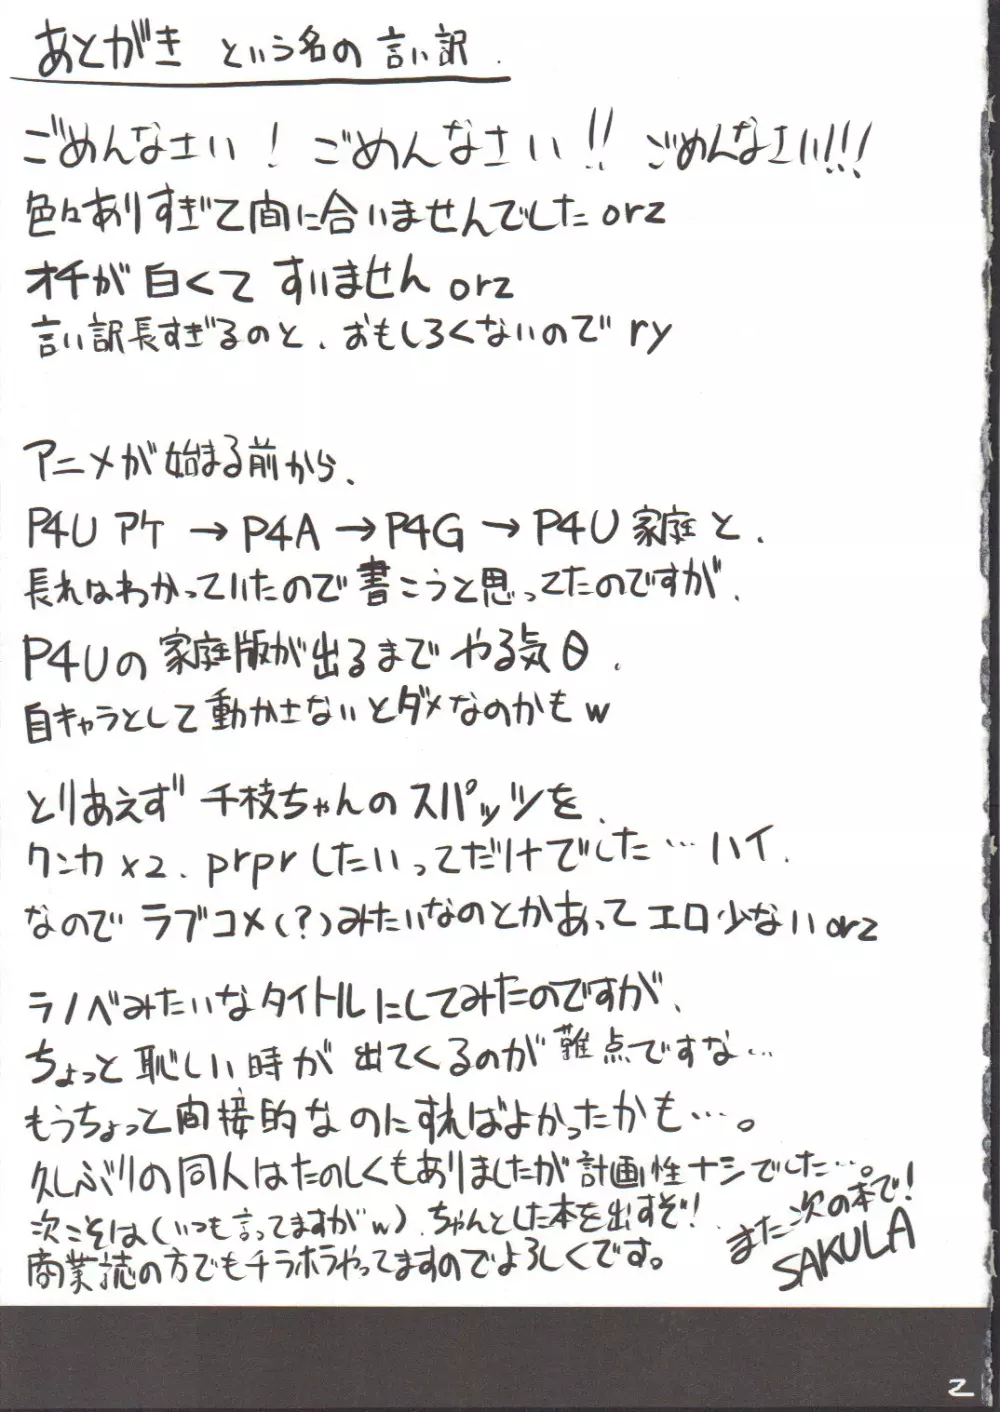 あとがき という名の 言い訳.
ごめんなさい! ごめんなさい!! ごめんなさい!!!
色々ありすぎて間に合いませんでした orz
オチが白くて すいません orz
言い訳長すぎるのと、おもしろくないので ry
アニメが始まる前から、
P4U アケ → P4A → P4G → P4U 家庭 と、
長れはわかっていたので書こうと思ってたのですが、
P4Uの家庭版が出るまで やる気0、
自キャラとして動かさないとダメなのかもw
とりあえず 千枝ちゃんのスパッツを、
クンカ×2、prprしたいってだけでした…ハイ、
なので ラブコメ(?)みたいなのとかあって エロ少ない orz
ラノベみたいなタイトルにしてみたのですが、
ちょっと恥しい時が出てくるのが難点ですな…
もうちょっと間接的なのにすればよかったかも…。
久しぶりの同人はたのしくもありましたが計画性ナシでした…。
次こそは(いつも言ってますがw)、ちゃんとした本を出すぞ!
商業誌の方でもチラホラやってますのでよろしくです。
また次の本で!
SAKULA
2